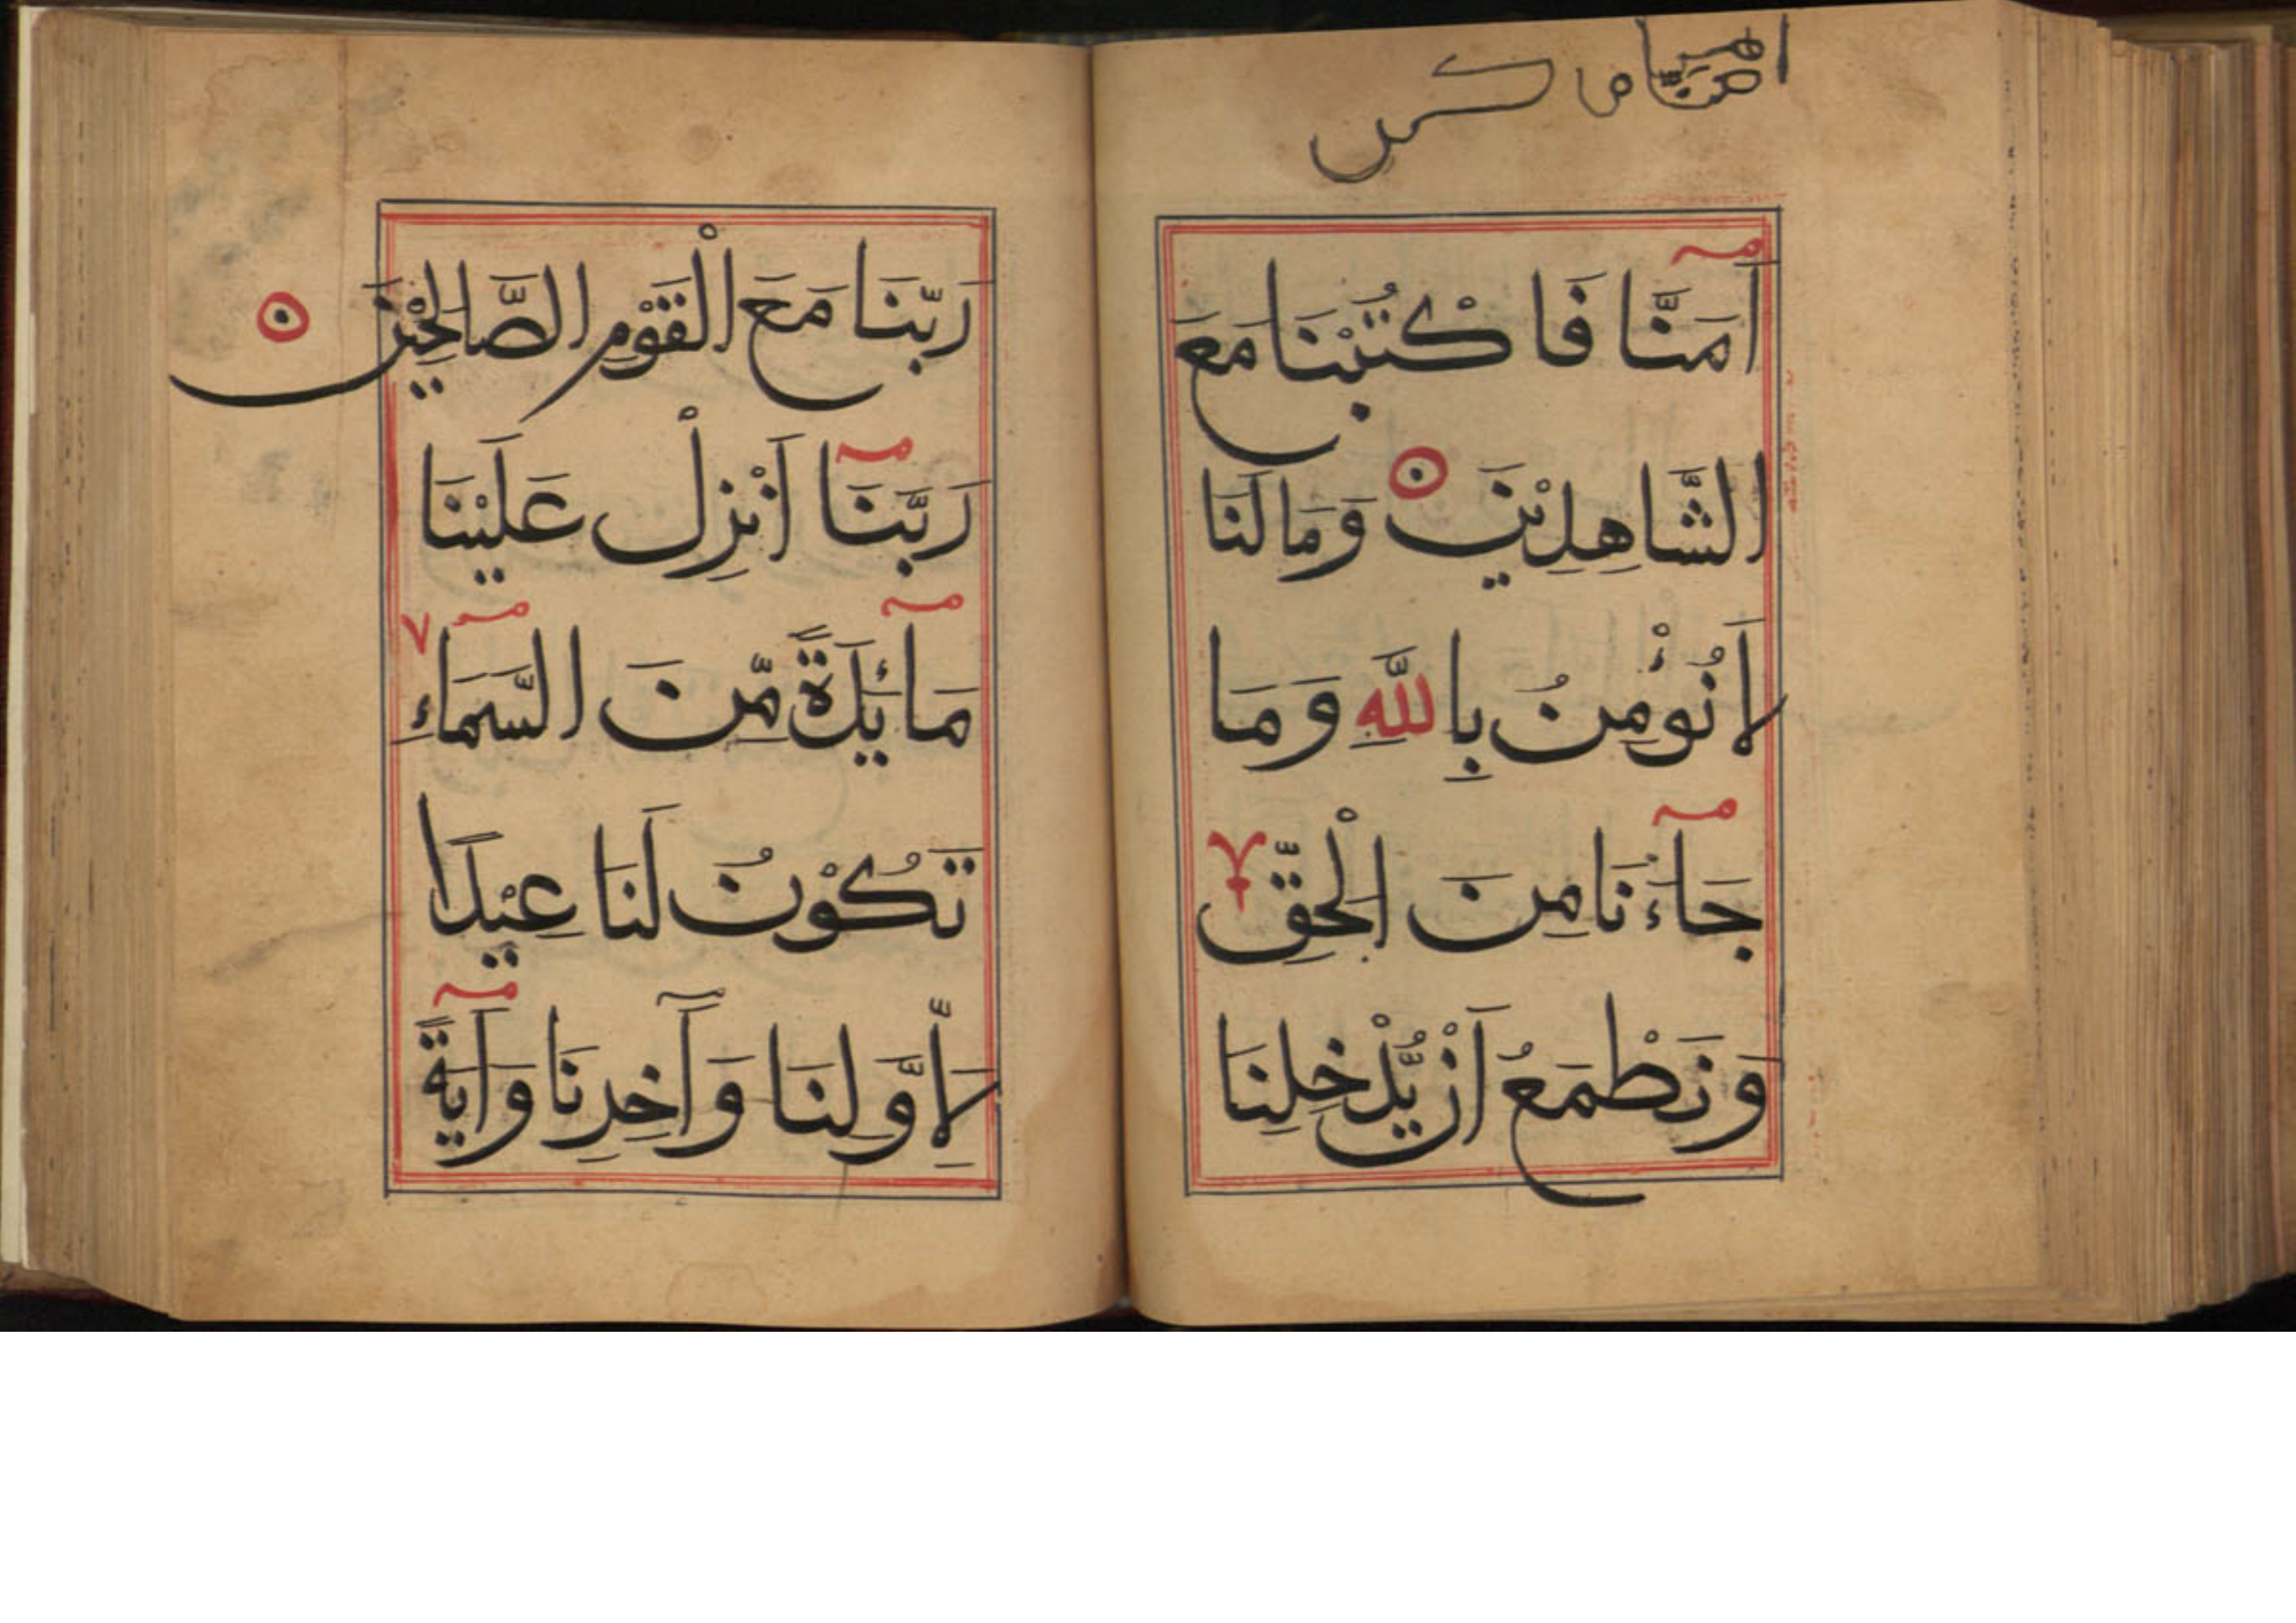 اٰمَنَّا فَاكْتُبْنَا مَعَ
الشَّاهِدِيْنَ وَمَا لَنَا
لَا نُؤْمِنُ بِاللّٰهِ وَمَا
جَاءَنَا مِنَ الْحَقِّ
وَنَطْمَعُ اَنْ يُّدْخِلَنَا
رَبَّنَا مَعَ الْقَوْمِ الصَّالِحِيْنَ
رَبَّنَا اَنْزِلْ عَلَيْنَا
مَائِدَةً مِّنَ السَّمَاءِ
تَكُوْنُ لَنَا عِيْدًا
لِاَوَّلِنَا وَآخِرِنَا وَآيَةً